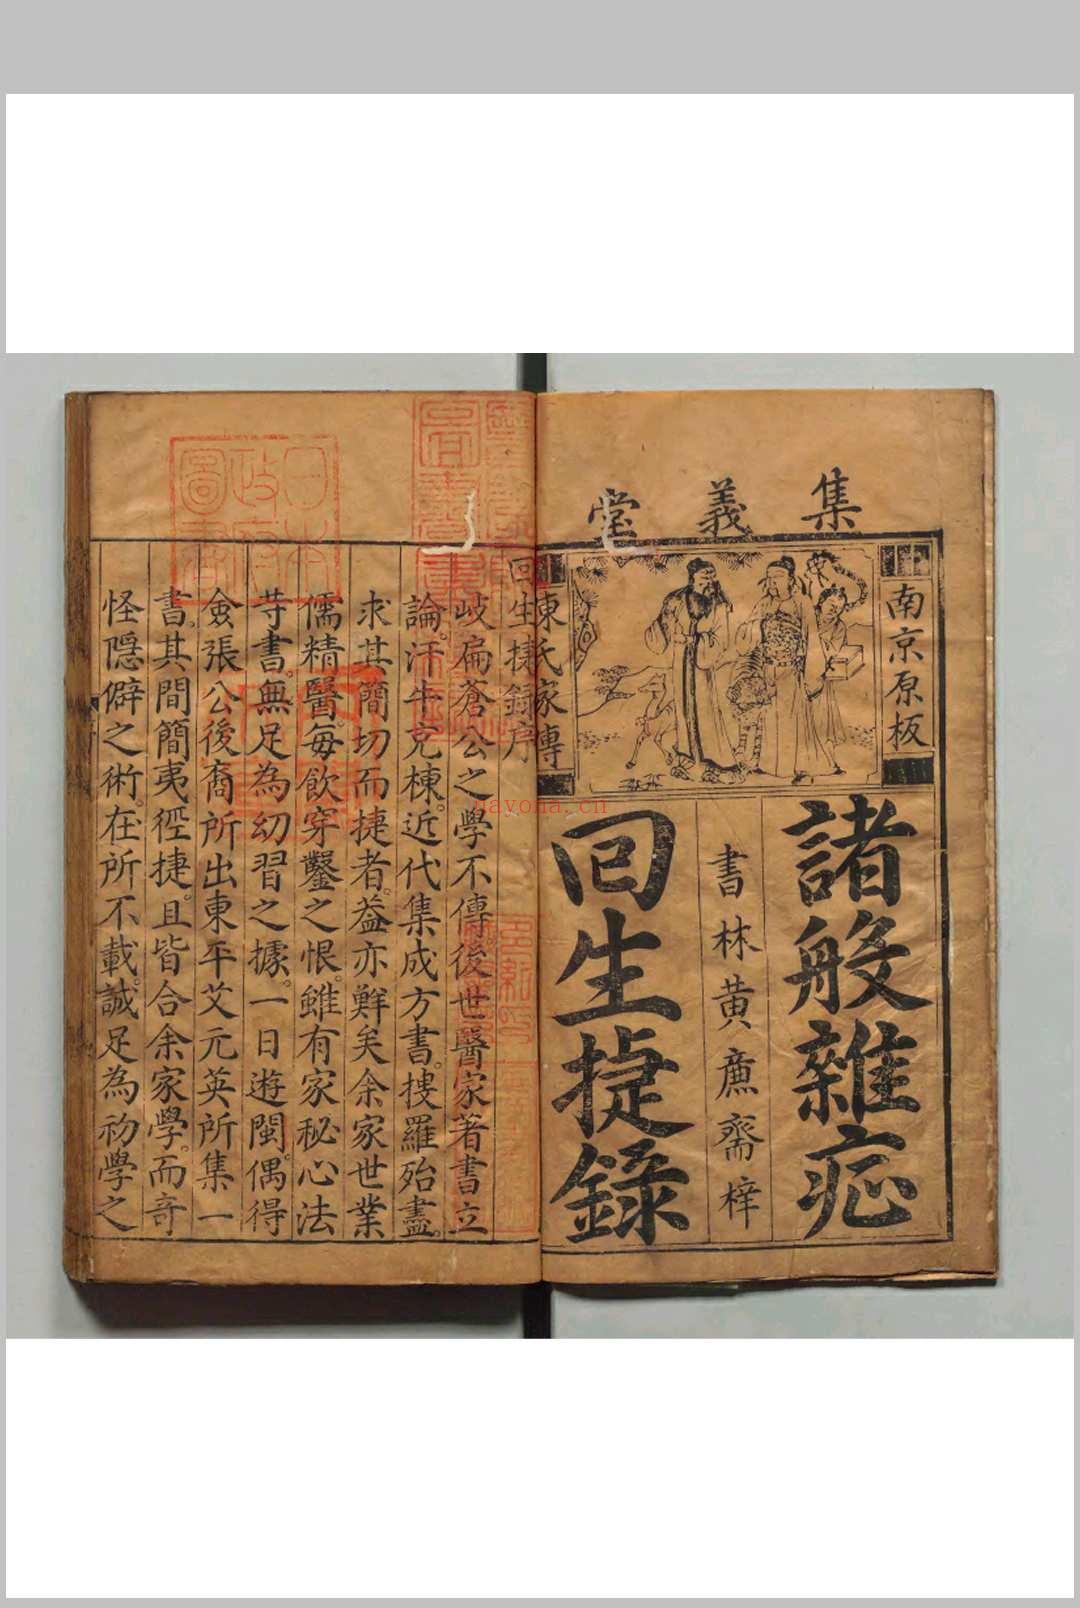 集義堂
南京原板
陳氏家傳
諸般雜症
書林黄廉齋梓
回生捷錄
回生捷錄序
岐扁蒼公之學不傳。後世醫家著書立
論。汗牛充棟。近代集成方書。捜羅殆盡。
求其簡切而捷者。葢亦鮮矣余家世業
儒精醫。每飲穿鑿之恨。雖有家秘心法
䒭書。無足為幼習之據。一日遊閩。偶得
僉張公後裔所出東平艾元英所集一
書。其間簡夷徑捷。且皆合余家學。而竒
怪隠僻之術。在所不載。誠足為初學之
日本政府圖書
nayona.cn